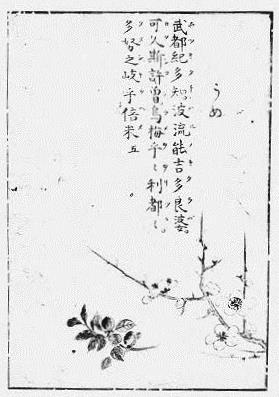 うめ
武都紀多知波流能吉多良婆
可久斯許曽烏梅乎ヽ利都ヽ
多努之岐乎倍米 五